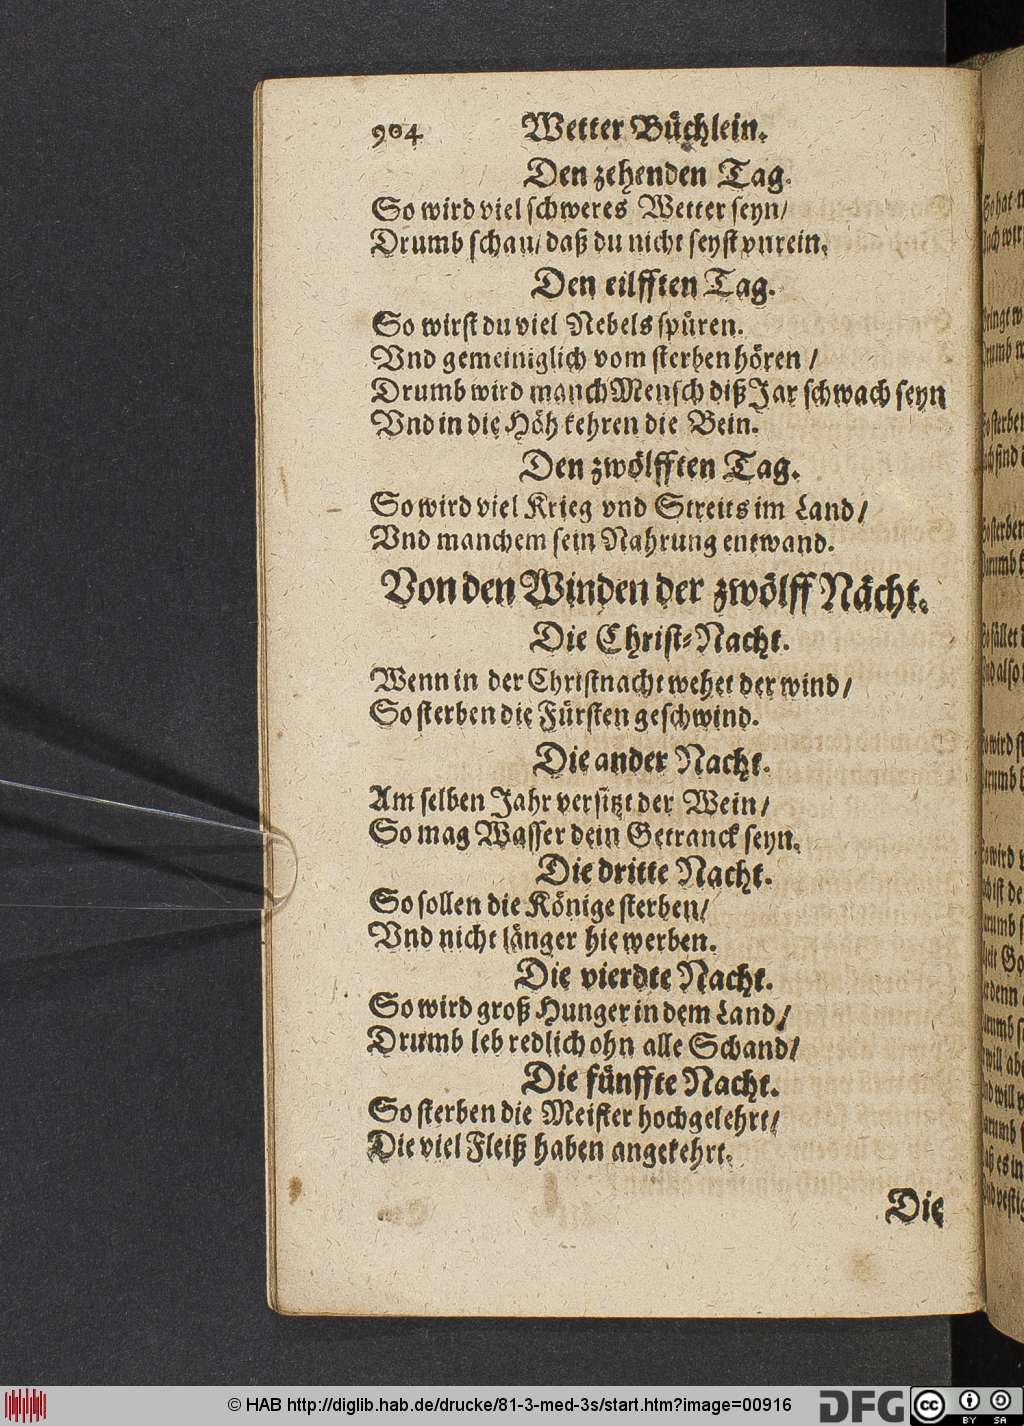 904 Wetter Büchlein.
Den zehenden Tag.
So wird viel schweres Wetter seyn/
Drumb schau/ daß du nicht seyst vnrein.
Den eilfften Tag.
So wirst du viel Nebels spüren.
Vnd gemeiniglich vom sterben hören /
Drumb wird manch Mensch diß Jar schwach seyn
Vnd in die Höh kehren die Bein.
Den zwölfften Tag.
So wird viel Krieg vnd Streits im Land/
Vnd manchem sein Nahrung entwand.
Von den Winden der zwölff Nächt.
Die Christ-Nacht.
Wenn in der Christnacht wehet der wind/
So sterben die Fürsten geschwind.
Die ander Nacht.
Am selben Jahr versitzt der Wein/
So mag Wasser dein Getranck seyn.
Die dritte Nacht.
So sollen die Könige sterben/
Vnd nicht länger hie werben.
Die vierdte Nacht.
So wird groß Hunger in dem Land/
Drumb leb redlich ohn alle Schand/
Die fünffte Nacht.
So sterben die Meister hochgelehrt/
Die viel Fleiß haben angekehrt.
Die
© HAB http://diglib.hab.de/drucke/81-3-med-3s/start.htm?image=00916
DFG
cc BY SA